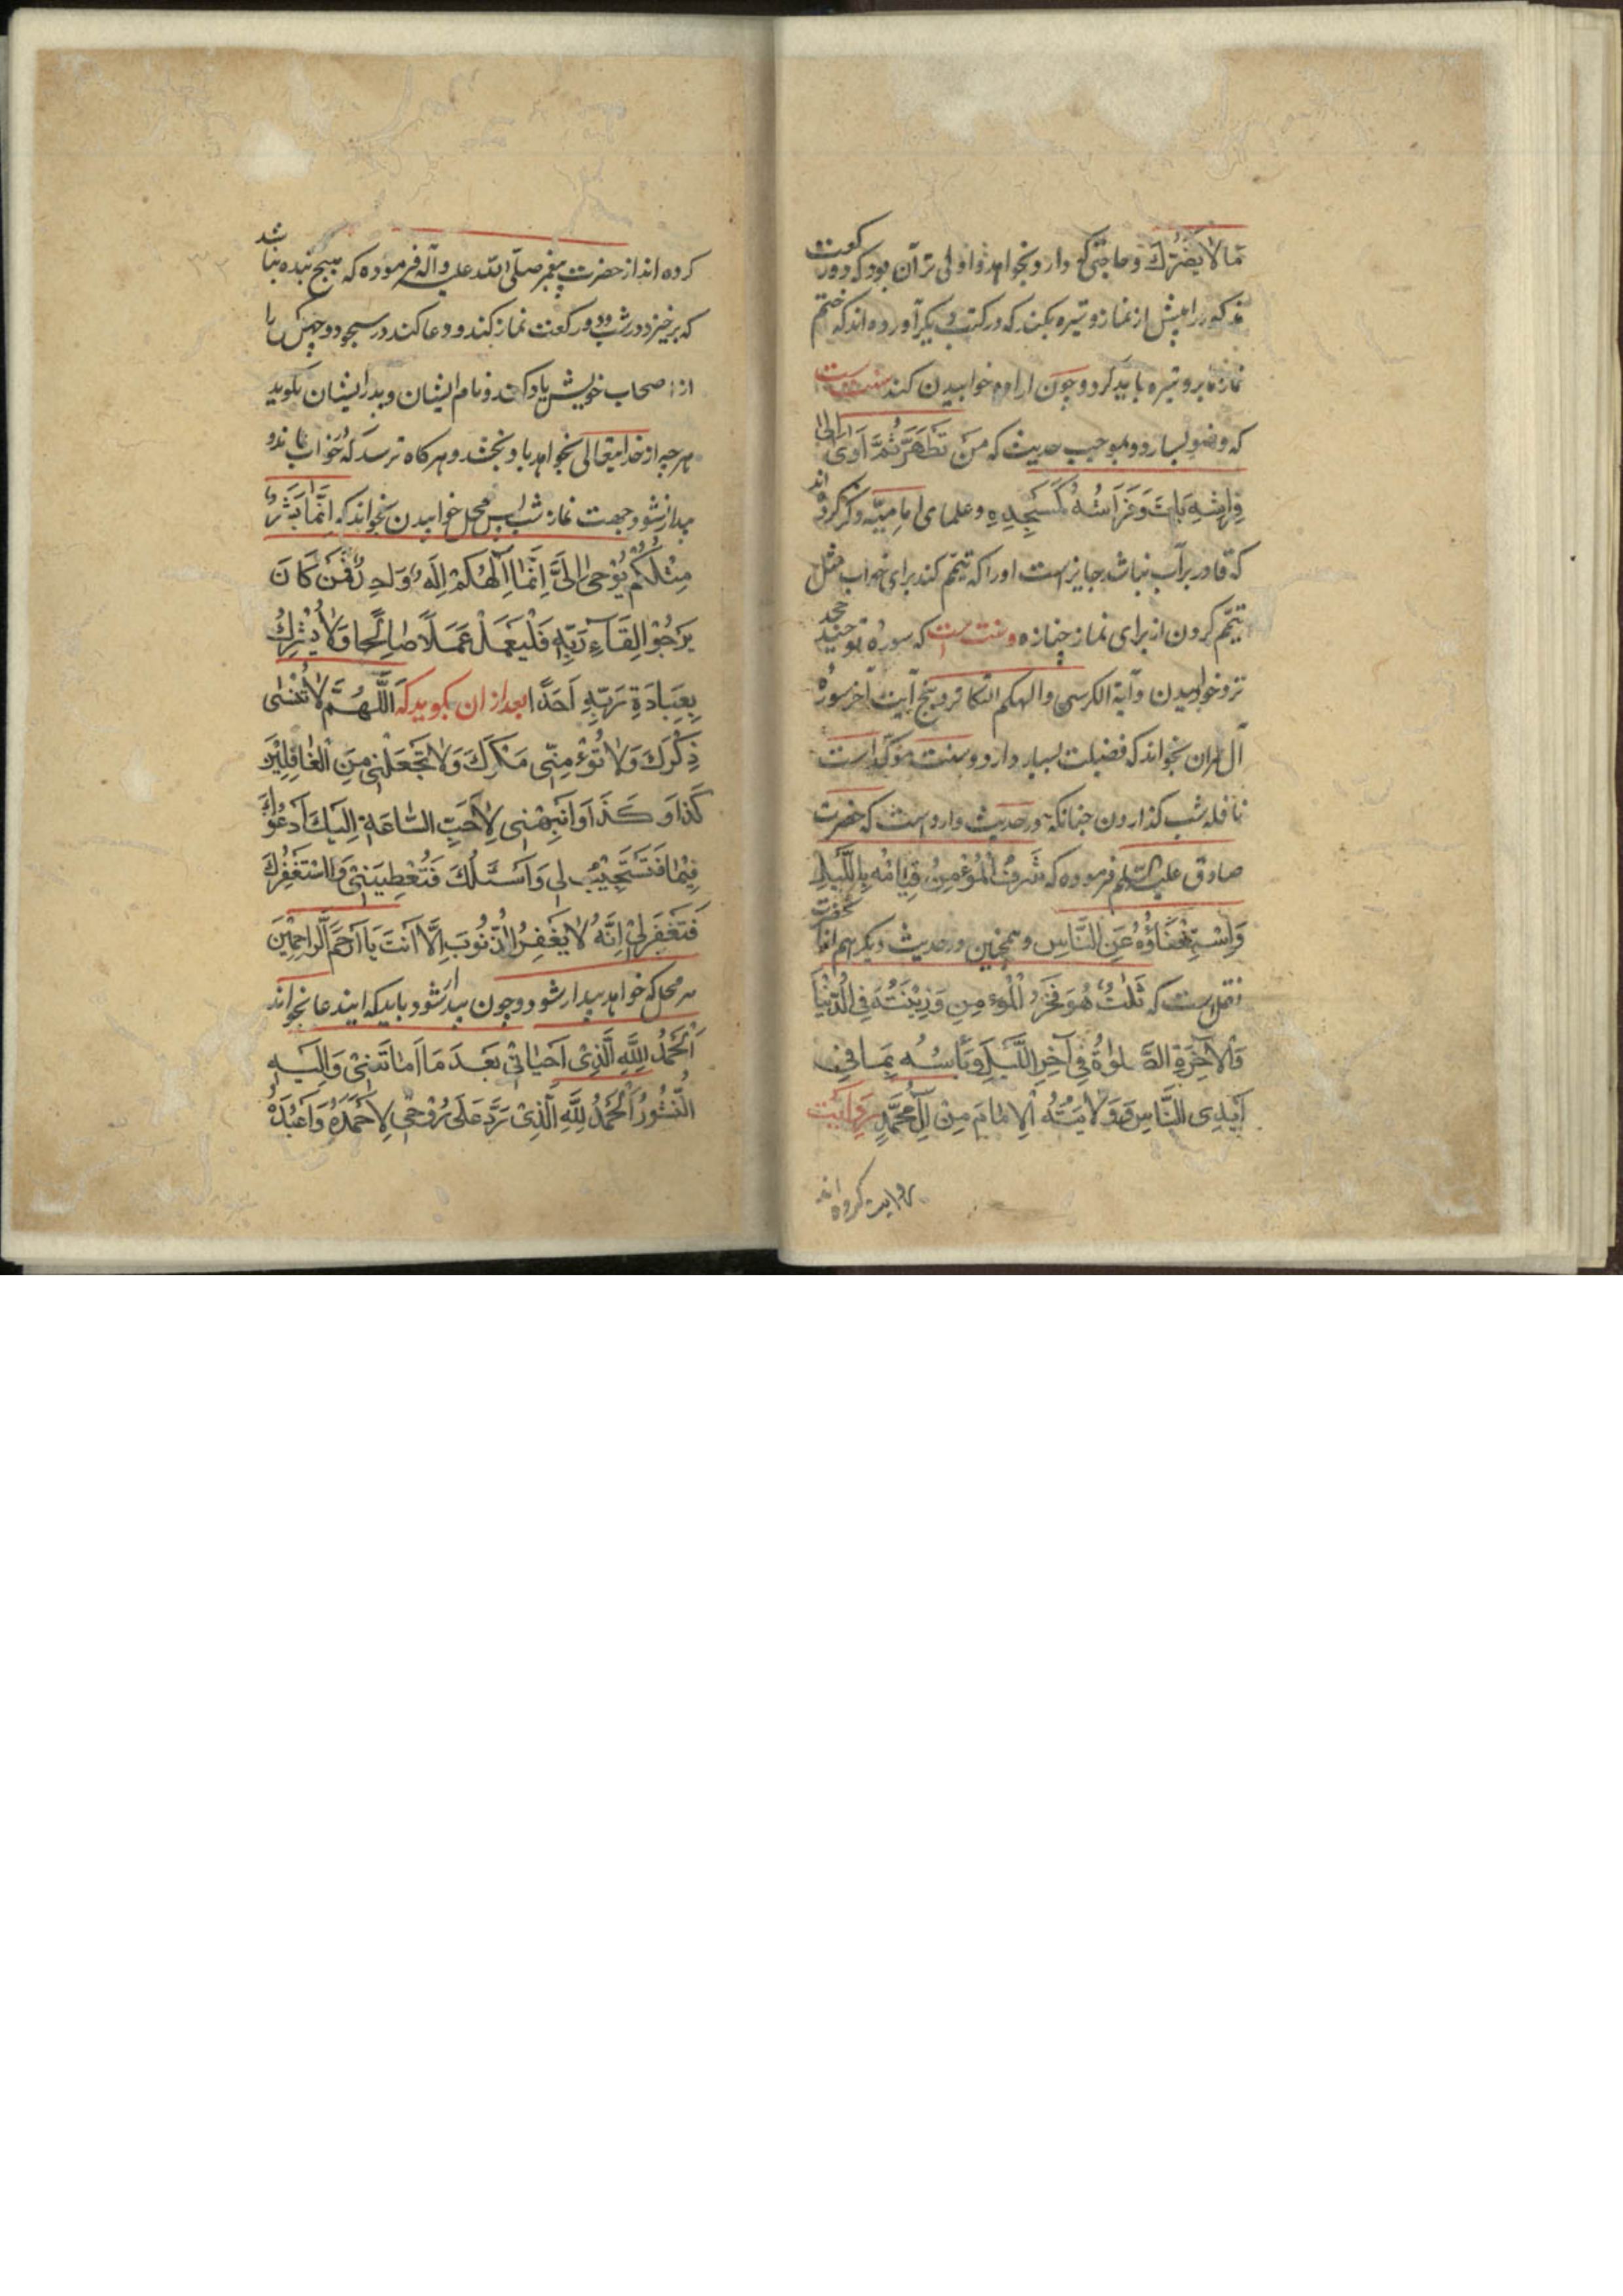 مَا لا یَضُرُّكَ و حاجتی که دارد بخواهد و اولی تر آن بود که دو رکعت
مذکور را پیش از نماز وتیره بکند که در کتب دیگر آورده اند که ختم
نمازها بر وتیره باید کرد و چون اراده خوابیدن کند سنت است
که وضو بسازد و بموجب حدیث که مَنْ تَطَهَّرَ ثُمَّ اَوی اِلی
فِراشِهِ بَاتَ وَ فِرَاشُهُ كَمَسْجِدِهِ و علمای امامیّه ذکر کرده اند
که قادر بر آب نباشد جایز است او را که تیمّم کند برای خواب مثل
تیمّم کردن از برای نماز جنازه و سنت است که سورهٔ توحید جحد
نزد خوابیدن و آیة الکرسی و الهیکم التکاثر و پنج آیت آخر سورهٔ
آل عمران بخواند که فضیلت بسیار دارد و سنت مؤکّد است
نافله شب گذاردن چنانکه در حدیث وارد است که حضرت
صادق علیه السّلم فرموده که شَرَفُ الْمُؤْمِنِ قِیَامُهُ بِاللَّیْلِ
وَ اسْتِغْنَاؤُهُ عَنِ النَّاسِ و همچنین در حدیث دیگر هم از آنحضرت
نقل است که ثَلٰثٌ هُوَ فَخْرُ الْمُؤْمِنِ وَ زِیْنَتُهُ فِی الدُّنْیَا
وَ الْاٰخِرَةِ الصَّلٰوةُ فِی آخِرِ اللَّیْلِ وَ یَأسُهُ بِمَا فِی
اَیْدِی النَّاسِ وَ وَلَایَتُهُ الْاِمَامَ مِنْ آلِ مُحَمَّدٍ روایت
روایت کرده اند
کرده اند از حضرت پیغمبر صلّی اللّه علیه و آله فرموده که هیچ بنده نباشد
که برخیزد در شب و دو رکعت نماز کند و دعا کند در سجود و چهل کس را
از اصحاب خویش یاد کند و نام ایشان و پدر ایشان بگوید
هر چه از خدایتعالی بخواهد باو بخشد و هرگاه ترسد که در خواب بماند و
بیدار نشود جهت نماز شب پس محل خوابیدن بخواند که اِنَّمَا اَنَا بَشَرٌ
مِثْلُكُمْ یُوْحٰی اِلَیَّ اَنَّمَا اِلٰهُكُمْ اِلٰهٌ وَاحِدٌ فَمَنْ كَانَ
یَرْجُوْ لِقَآءَ رَبِّهِ فَلْیَعْمَلْ عَمَلًا صَالِحًا وَ لَا یُشْرِكْ
بِعِبَادَةِ رَبِّهِ اَحَدًا بعد از ان بگوید که اَللّٰهُمَّ لَا تُنْسِنِی
ذِكْرَكَ وَ لَا تُؤْمِنِّی مَكْرَكَ وَ لَا تَجْعَلْنِی مِنَ الْغَافِلِیْنَ
كَذَا وَ كَذَا وَ اَنْبِهْنِی لِاَحَبِّ السَّاعَةِ اِلَیْكَ اَدْعُوْكَ
فِیْهَا فَتَسْتَجِیْبُ لِی وَ اَسْئَلُكَ فَتُعْطِیَنِیْ وَ اسْتَغْفِرُكَ
فَتَغْفِرَ لِیْ اِنَّهُ لَا یَغْفِرُ الذُّنُوْبَ اِلَّا اَنْتَ یَا اَرْحَمَ الرَّاحِمِیْنَ
هر محل که خواهد بیدار شود و چون بیدار شود باید که ایندعا بخواند
اَلْحَمْدُ لِلّٰهِ الَّذِیْ اَحْیَانِیْ بَعْدَ مَا اَمَاتَنِیْ وَ اِلَیْهِ
النُّشُوْرُ اَلْحَمْدُ لِلّٰهِ الَّذِیْ رَدَّ عَلَی رُوْحِی لِاَحْمَدَهُ وَ اَعْبُدَهُ